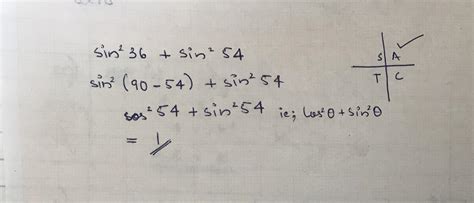 sin² 36 + sin² 54
sin² (90 - 54) + sin² 54
cos² 54 + sin² 54 ie; cos²θ + sin²θ
= 1
S A
T C